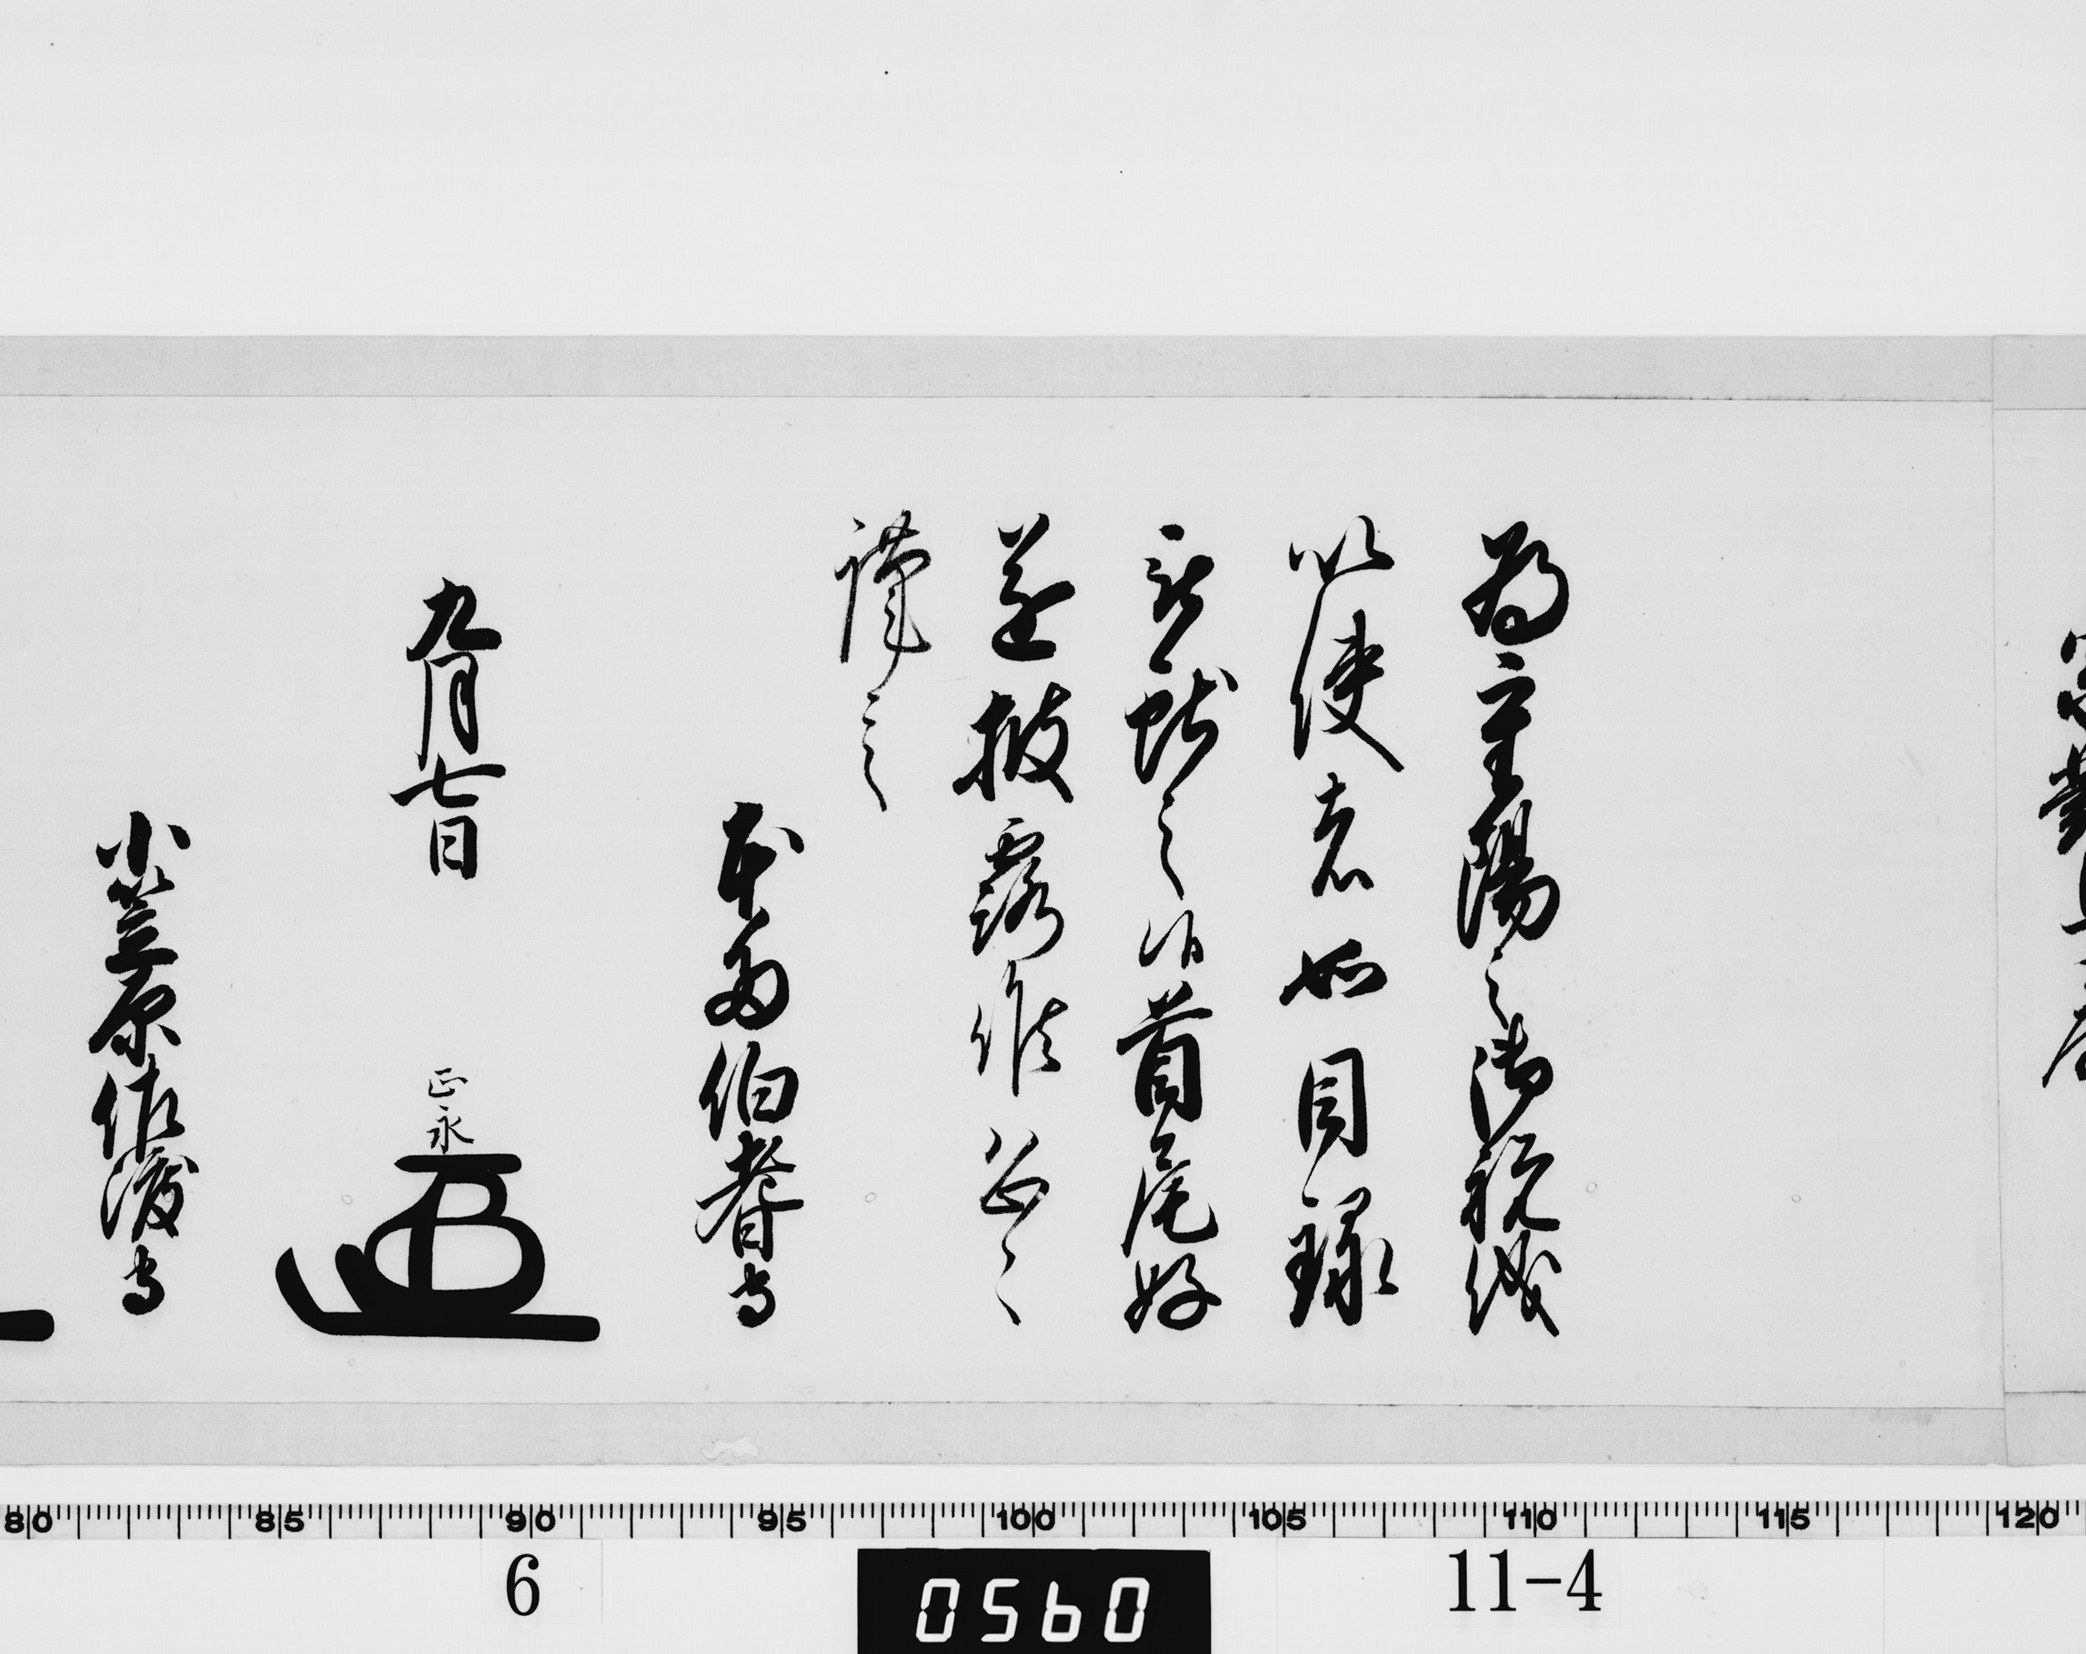 為重陽之御祝儀
以使者如目録
被献之候首尾好
遂披露候恐々
謹言
本多伯耆守
九月七日
正永
小笠原佐渡守
80 85 90 95 100 105 110 115 120
6
0560
11-4